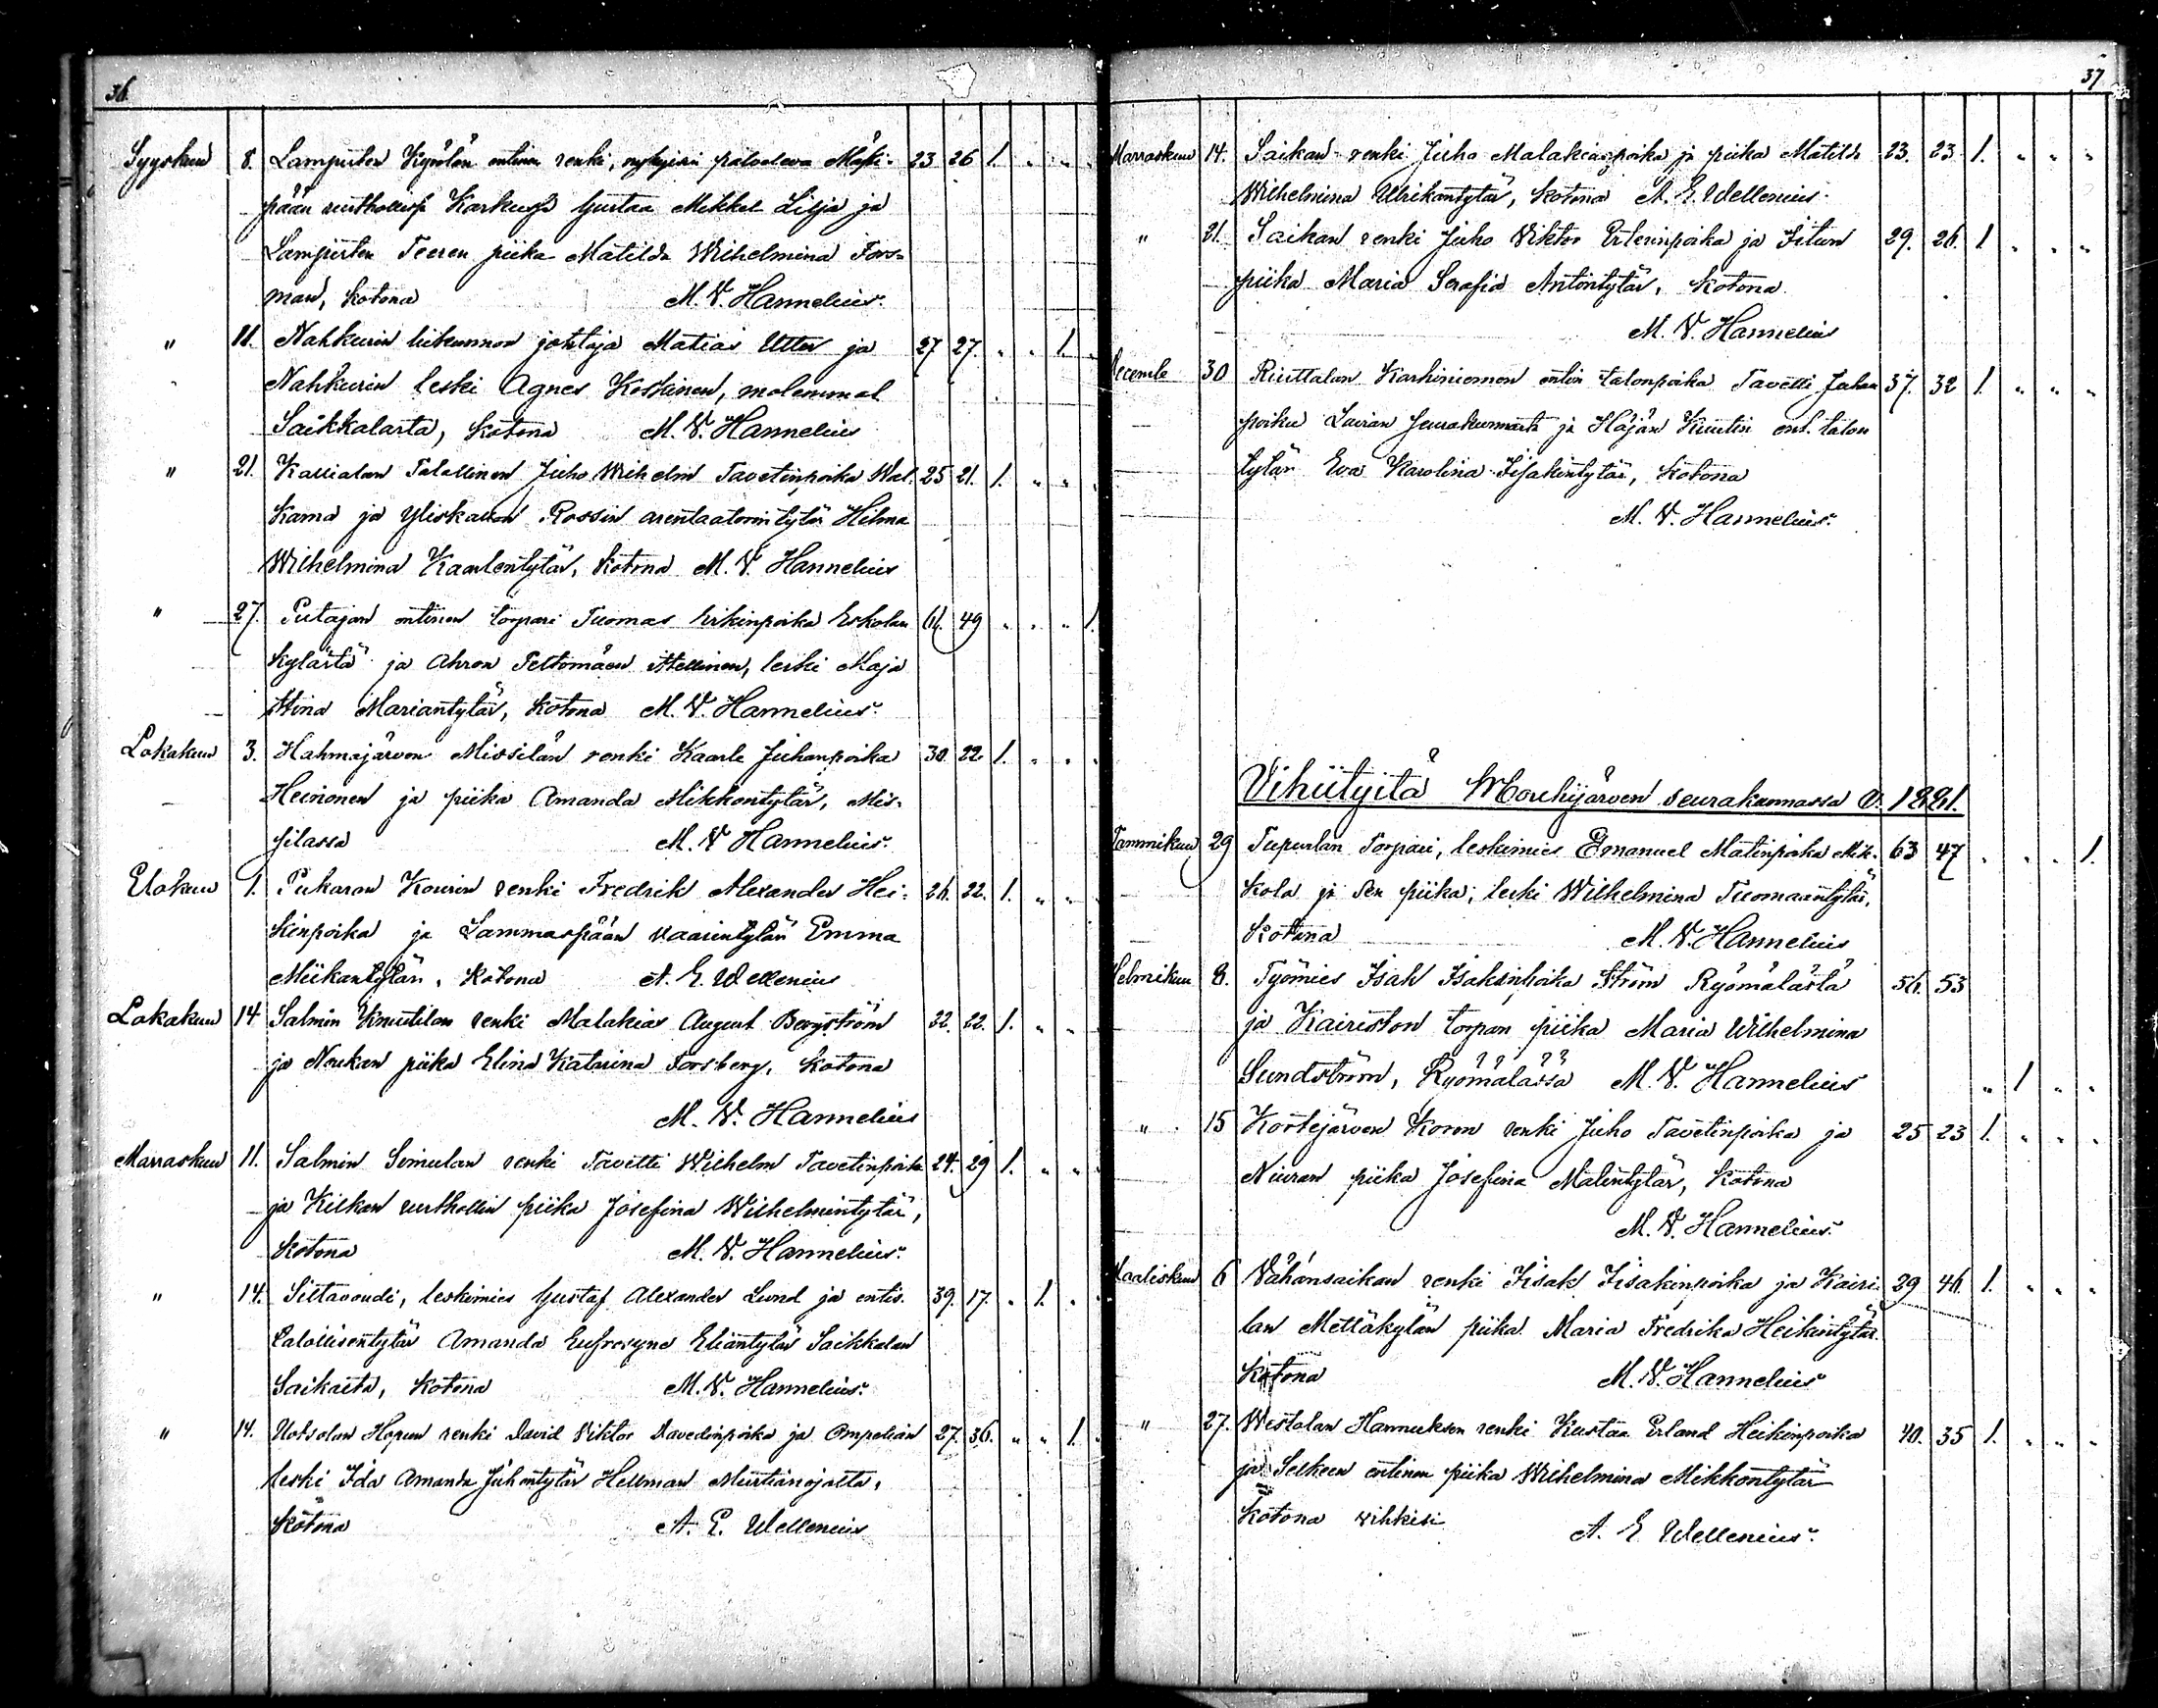 36.
Syyskuu 8. Lampisten Kynölön entinen renki, nykyisin palveleva Mäki- 23 26 1. " " "
pään rusthollissa Karkussa Gustaa Mikkel Lilja ja
Lampisten Teeren piika Matilda Wilhelmina Fors=
man, kotona M. V. Hannelius.
" 11. Nahkurin liikunnon johtaja Matias Utter ja 27 27. " " 1. "
Nahkurin leski Agnes Koskinen, molemmat
Saikkalasta, kotona M. V. Hannelius
" 21. Kallialan Talollinen Juho Wilhelm Tavetinpoika Wal- 25 21. 1. " " "
kama ja Yliskallon Rossin arentaatorintytär Hilma
Wilhelmina Kaarlentytär, kotona M. V. Hannelius
" 27. Putajan entinen torpari Tuomas Erkinpoika Eskolan 61. 49 " " " 1.
kylästä ja Ahron Peltomäen itsellinen, leski Maja
Stina Mariantytär, kotona M. V. Hannelius.
Lokakuu 3. Hahmajärven Missilän renki Kaarle Juhanpoika 30. 22 1. " " "
Heinonen ja piika Amanda Mikkontytär, Mis-
silassa M. V Hannelius.
Elokuu 1. Pukaran Kourin renki Fredrik Alexander Hei- 26. 22. 1. " "
kinpoika ja Lammaspään vaarintytär Emma
Miikantytär, kotona A. E. Wellenius
Lokakuu 14 Salmin Knuutilan renki Malakias August Bergström 22. 22. 1. " "
ja Noukan piika Elina Katarina Forsberg, kotona
M. V. Hannelius
Marraskuu 11. Salmin Simulan renki Tavetti Wilhelm Tavetinpoika 24. 29 1. " "
ja Kilkan rusthollin piika Josefina Wilhelmintytär,
kotona M. V. Hannelius.
" 14. Siltavouti, leskimies Gustaf Alexander Lund ja entis. 39. 17. " 1. "
talollisentytär Amanda Eufrosyne Eliantytär Saikkalan
Saikasta, kotona M. V. Hannelius.
" 14. Uotsolan Hopun renki David Viktor Davedinpoika ja Ompelian 27. 36. " " 1. "
leski Ida Amanda Juhantytär Hellman Miirtianojalta,
kotona A. E. Wellenius
37
Marraskuu 14. Saikan renki Juho Malakiaspoika ja piika Matilda 23. 23. 1. " " "
Wilhelmina Ulrikantytär, kotona A. E. Wellenius.
" 21. Saikan renki Juho Viktor Erlerinpoika ja Iitun 29. 26. 1 " " "
piika Maria Serafia Antöntytär, kotona.
M. V. Hannelius
Decembr 30 Riuttalan Karhiniemen entin talonpoika Tavetti Juhan 37. 32 1. " " "
poika Lavian seurakunnasta ja Häjän Kuutin ent. talon
tytär Eva Karolina Iisakintytär, kotona
M. V. Hannelius.
Vihityitä Mouhijärven seurakunnassa v. 1881.
Tammikuu 29 Tupurlan Torpari, leskimies Emanuel Matinpoika Mik- 63 47 " " " 1.
kola ja sen piika, leski Wilhelmina Tuomaantytär,
kotona M. V. Hannelius
Helmikuu 8. Työmies Isak Isakinpoika Ström Ryömälästä 56. 53
ja Kairiston torpan piika Maria Wilhelmina
Sundström, Ryömälässä M. V. Hannelius " 1 " "
" 15 Kortejärven Koron renki Juho Tavetinpoika ja 25 23 1. " " "
Niuran piika Josefina Matintytär, kotona
M. V. Hannelius.
Maaliskuu 6 Vähänsaikan renki Iisak Iisakinpoika ja Kairi- 29 46. 1. " " "
lan Mettäkylän piika Maria Fredrika Heikintytär
kotona M. V. Hannelius
" 27. Westolan Hannuksen renki Kustaa Erland Heikinpoika 40. 35 1. " " "
ja Selkeen entinen piika Wilhelmina Mikkontytär
Kotona vihkisi A. E Wellenius.